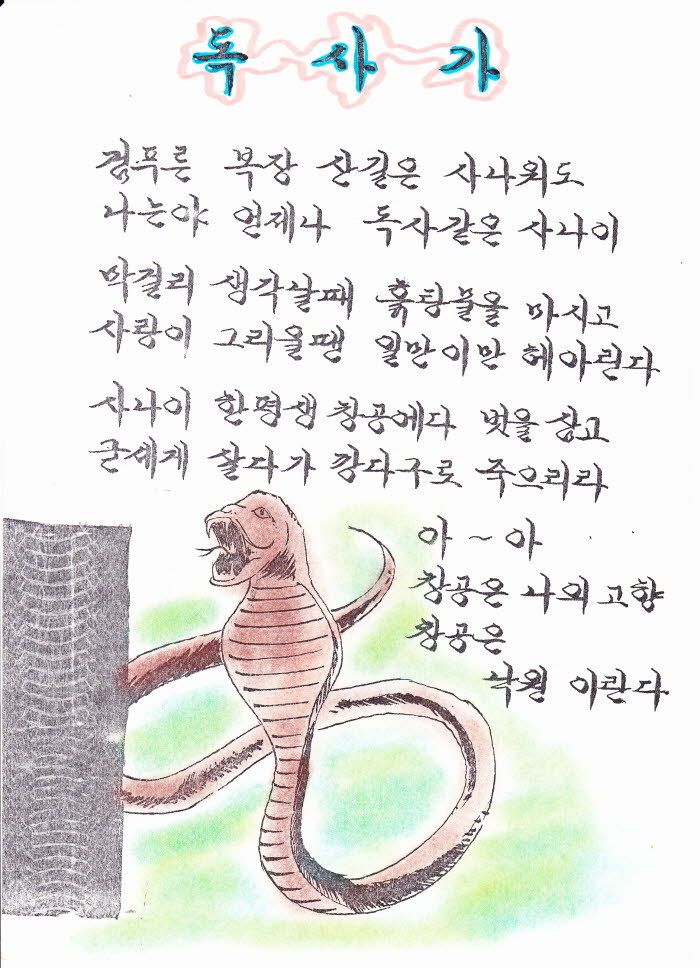 독사가
검푸른 복장 산길은 사나워도
나는야 언제나 독사같은 사나이
막걸리 생각날때 흙탕물을 마시고
사랑이 그리울땐 일만이만 헤아린다
사나이 한평생 창공에다 벗을 삼고
굳세게 살다가 깡다구로 죽으리라
아 ~ 아
창공은 나의 고향
창공은
낙원 이란다